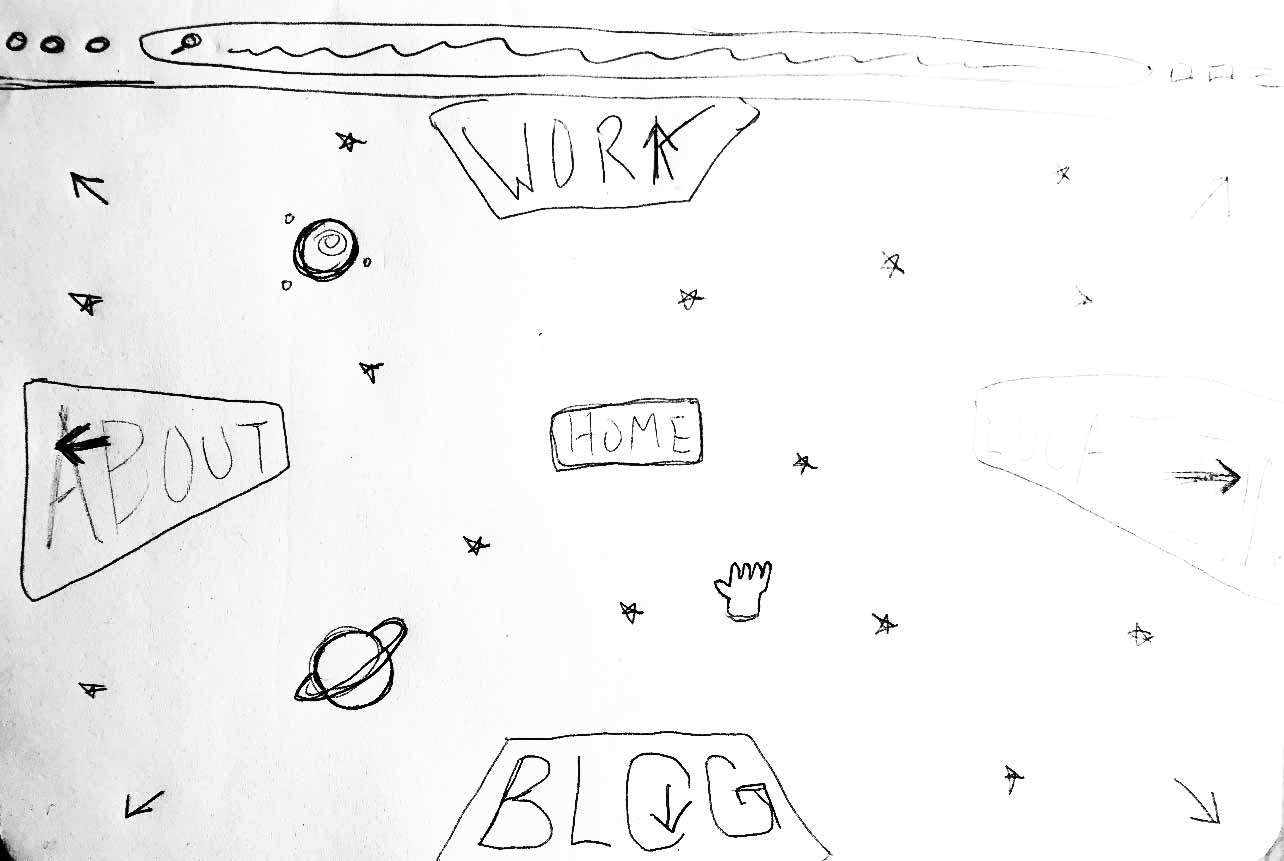 WORK
ABOUT
HOME
BLOG